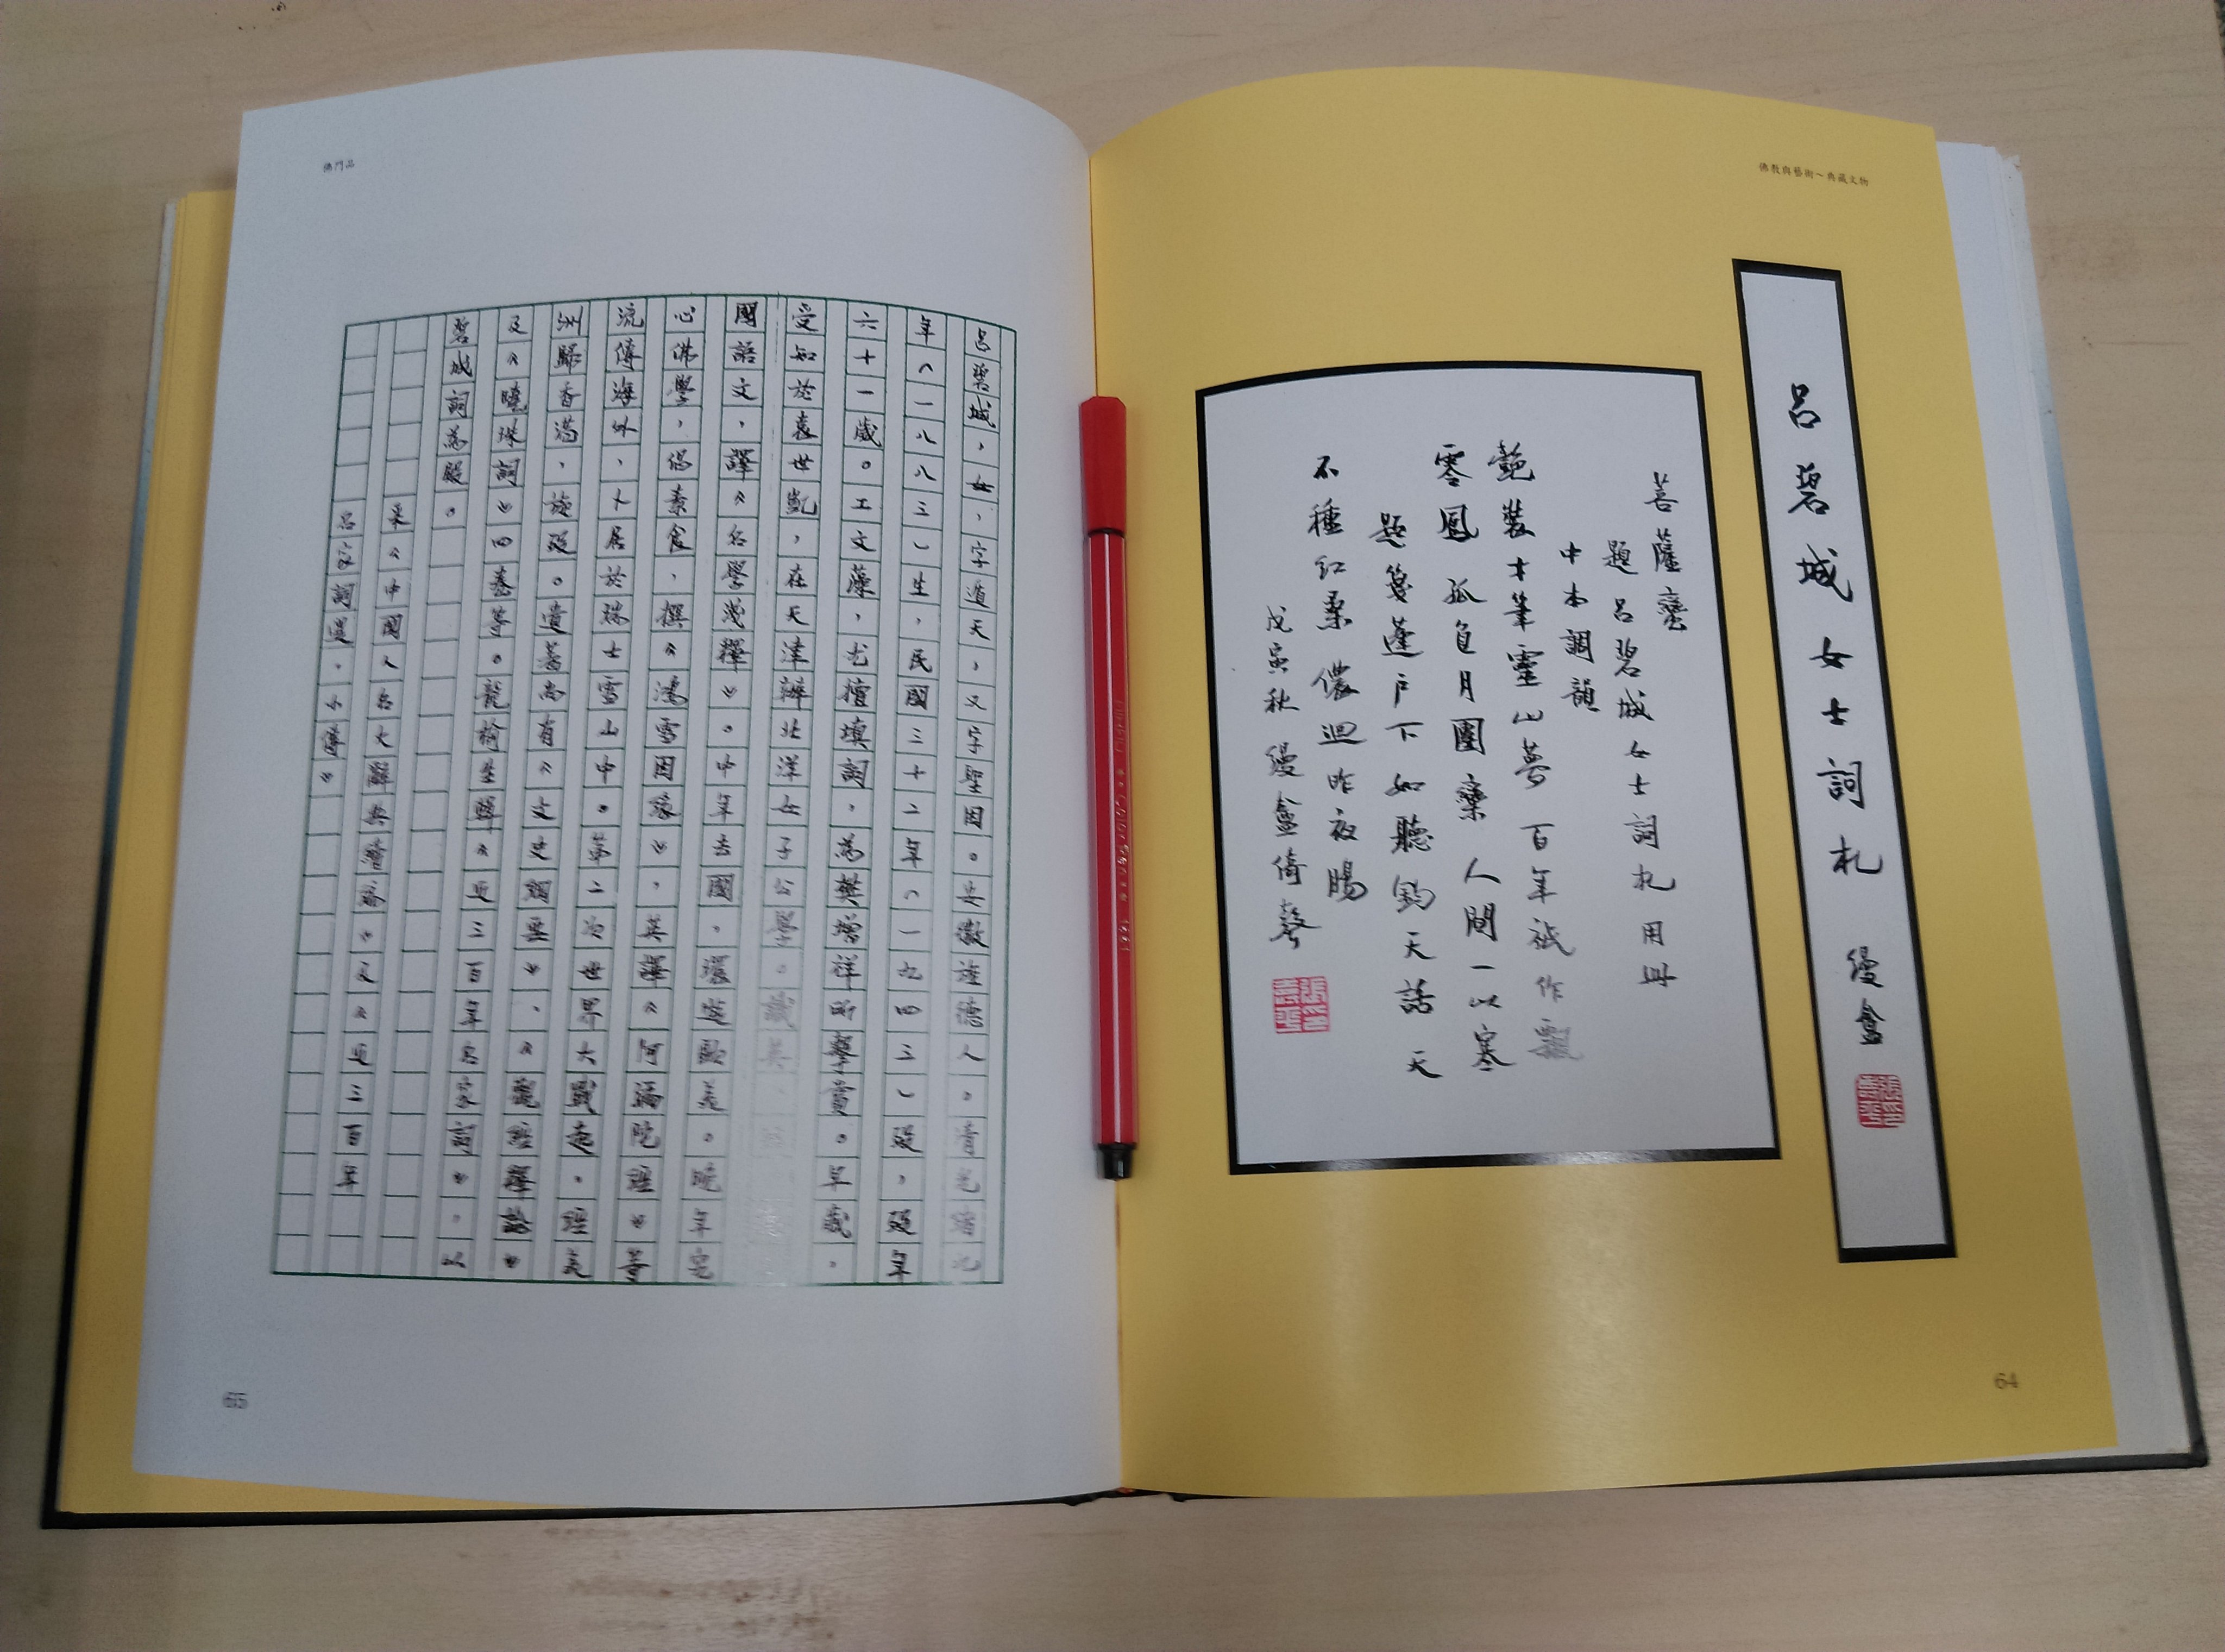 佛教與藝術～典藏文物
呂碧城女士詞札
菩薩蠻
題呂碧城女士詞札用冊
中本調韻
艷裝才筆靈山夢 百年祇作飄
零鳳 孤負月團欒 人間一以寒
題箋蓬戶下 如聽鈞天話 天
不種紅桑 儂迴昨夜腸
戊寅秋
64
佛門品
呂碧城，女，字遁天，又字聖因。安徽旌德人。清光緒九
年（一八八三）生，民國三十二年（一九四三）歿，歿年
六十一歲。工文藻，尤擅填詞，為樊增祥所擊賞。早歲，
受知於袁世凱，在天津辦北洋女子公學。
國語文，譯《名學淺釋》。中年去國，環遊歐美。晚年究
心佛學，倡素食，撰《鴻雪因緣》，英譯《阿彌陀經》等
流傳海外，卜居於瑞士雪山中。第二次世界大戰起，經美
洲歸香港，旋歿。遺著尚有《文史綱要》、《觀經釋論》
及《曉珠詞》四卷等。龍榆生輯《近三百年名家詞》，以
碧城詞為殿。
采《中國人名大辭典續編》又《近三百年
名家詞選，小傳》
65